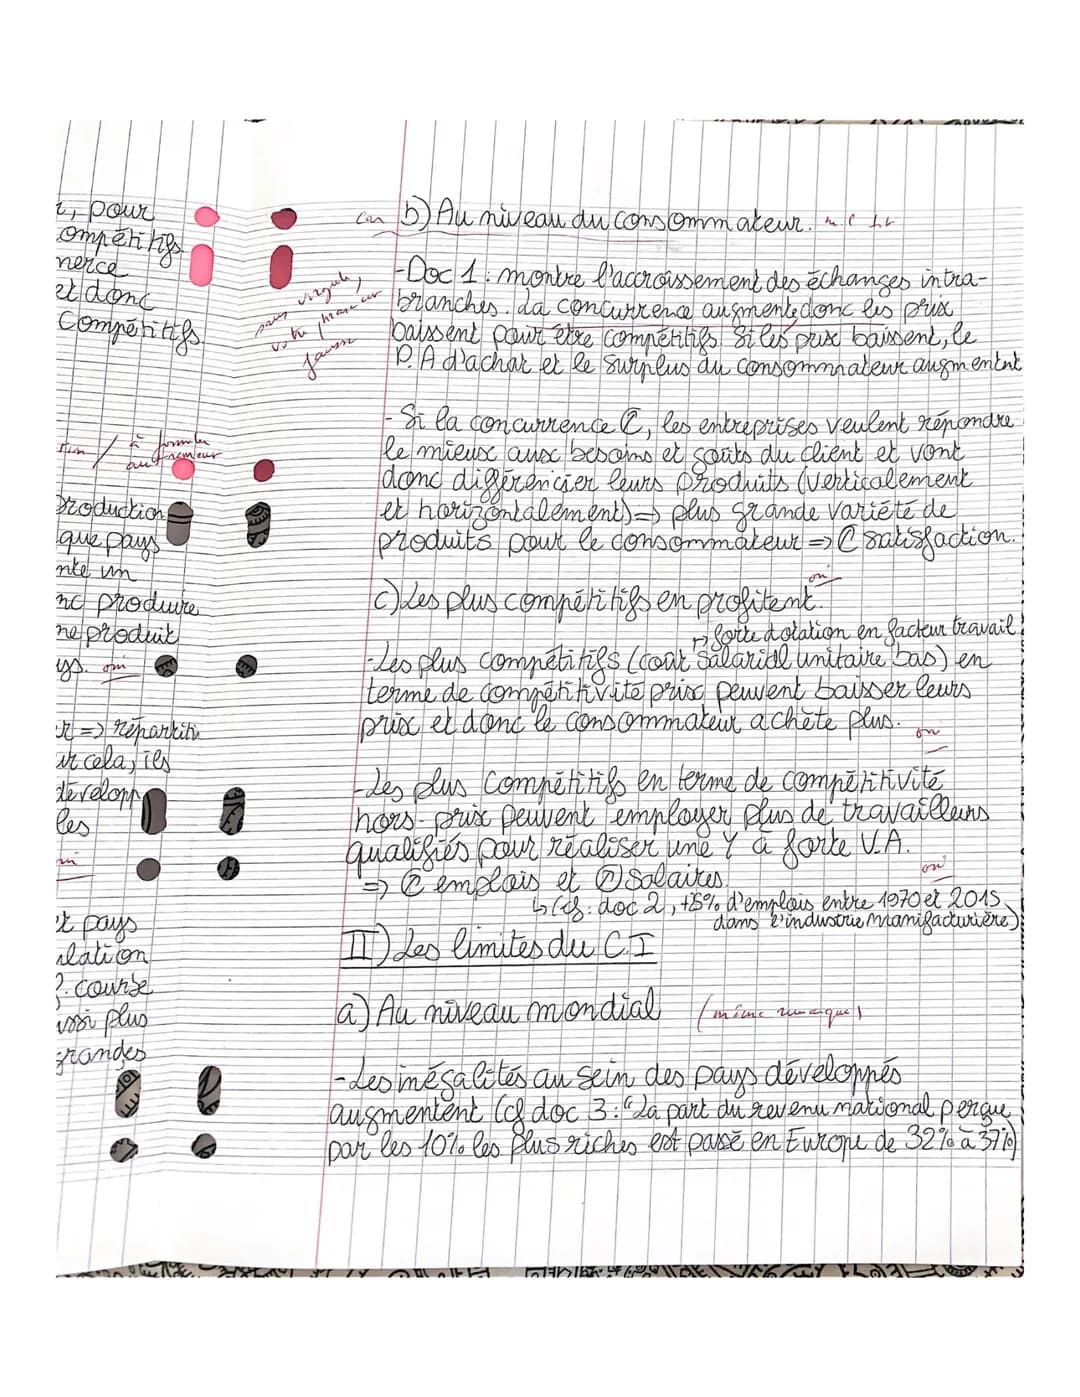 r, pour
ompétitifs.
merce
et donc
Compétitifs.
à formuler
autrement
Production
que pays
nte un
nc produire
ne produit
ys. oui
=> répartiti
ur cela, ils
développ
les
et pays
ulation
course
ussi plus
grandes
b) Au niveau du consommateur.
pas virgule,
votre manœuv
fausse
- Doc 1 : montre l'accroissement des échanges intra-
branches. La concurrence augmente donc les prix
baissent pour être compétitifs. Si les prix baissent, le
P.A d'achat et le surplus du consommateur augmentent
- Si la concurrence ↗, les entreprises veulent répondre
le mieux aux besoins et goûts du client et vont
donc différencier leurs produits (verticalement
et horizontalement) => plus grande variété de
produits pour le consommateur => ↗ satisfaction.
c) Les plus compétitifs en profitent. oui
↳ forte dotation en facteur travail
- Les plus compétitifs (coût salarial unitaire bas) en
terme de compétitivité prix peuvent baisser leurs
prix et donc le consommateur achète plus. oui
- Les plus compétitifs en terme de compétitivité
hors-prix peuvent employer plus de travailleurs
qualifiés pour réaliser une Y à forte V.A. oui
=> ↗ emplois et ↗ salaires.
↳ (cf. doc 2, +25% d'emplois entre 1970 et 2015
dans l'industrie manifacturière)
II) Les limites du CI
a) Au niveau mondial (même remarque)
- Les inégalités au sein des pays développés
augmentent (cf doc 3 : "La part du revenu national perçue
par les 10% les plus riches est passé en Europe de 32% à 37%)